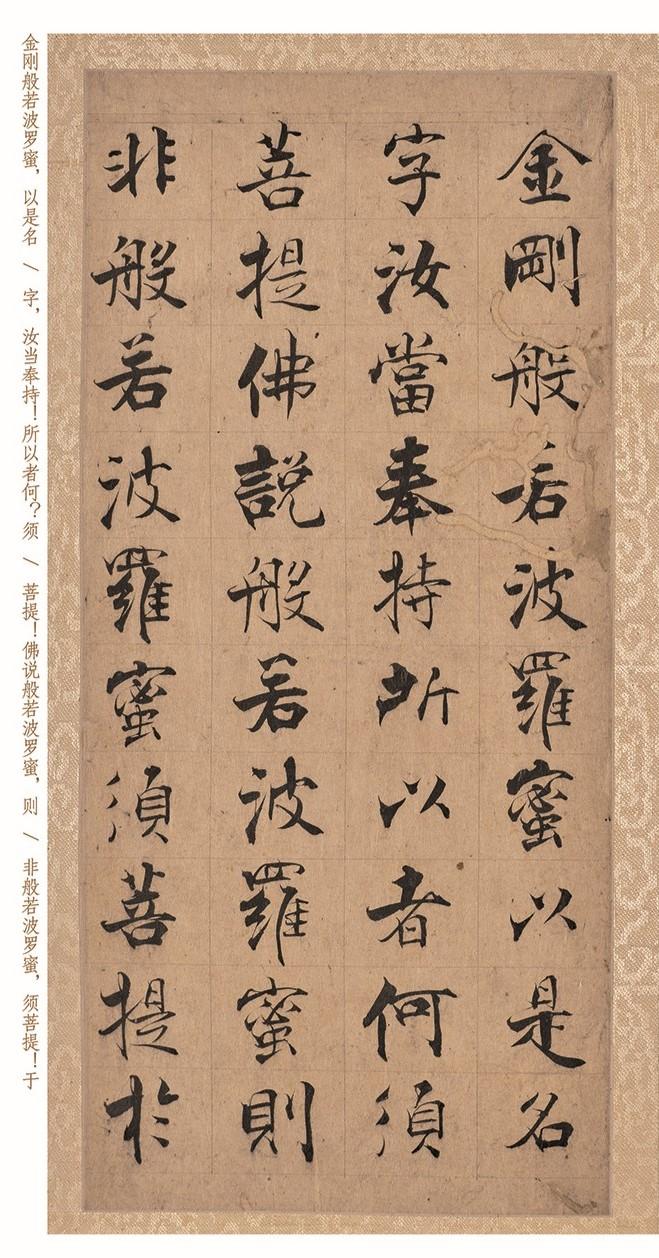 金剛般若波羅蜜以是名
字汝當奉持所以者何須
菩提佛説般若波羅蜜則
非般若波羅蜜須菩提於
金刚般若波罗蜜，以是名 / 字，汝当奉持！所以者何？须 / 菩提！佛说般若波罗蜜，则 / 非般若波罗蜜，须菩提！于